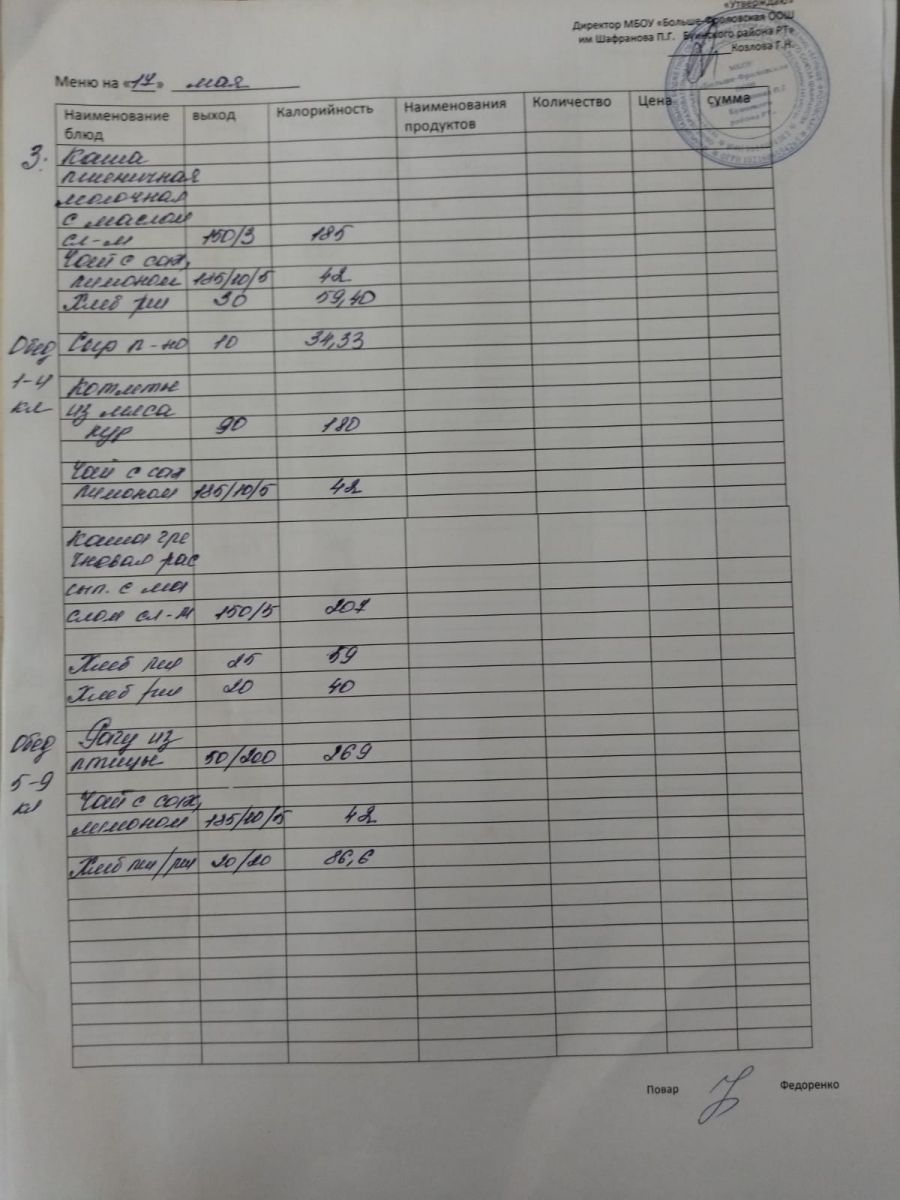 «Утверждаю»
Директор МБОУ «Больше-Фроловская ООШ
им Шафранова П.Г. Буинского района РТ»
Козлова Г.Н.
Меню на «17» мая
Наименование блюд выход Калорийность Наименования продуктов Количество Цена сумма
3. Каша
пшеничная
молочная
с маслом
сл-м 150/3 185
Чай с сах,
лимоном 185/10/5 42
Хлеб рж 30 59,40
Обед Сыр п-но 10 34,33
1-4 Котлеты
кл из мяса
кур 90 180
Чай с сах
лимоном 185/10/5 42
Каша гре
чновая рас
сып. с ма
слом сл-м 150/5 207
Хлеб пш 25 59
Хлеб рж 20 40
Обед Рагу из
птицы 50/200 269
5-9 Чай с сах,
кл лимоном 185/10/5 42
Хлеб пш/рж 20/20 86,6
Повар Федоренко